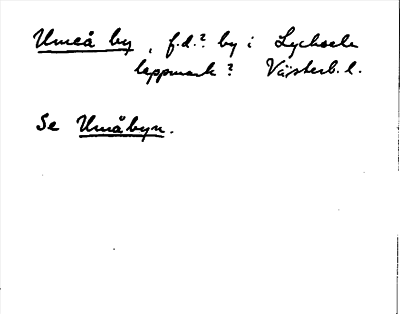 Umeå by, f.d.? by i Lycksele
lappmark? Västerb. l.
Se Umåbyn.